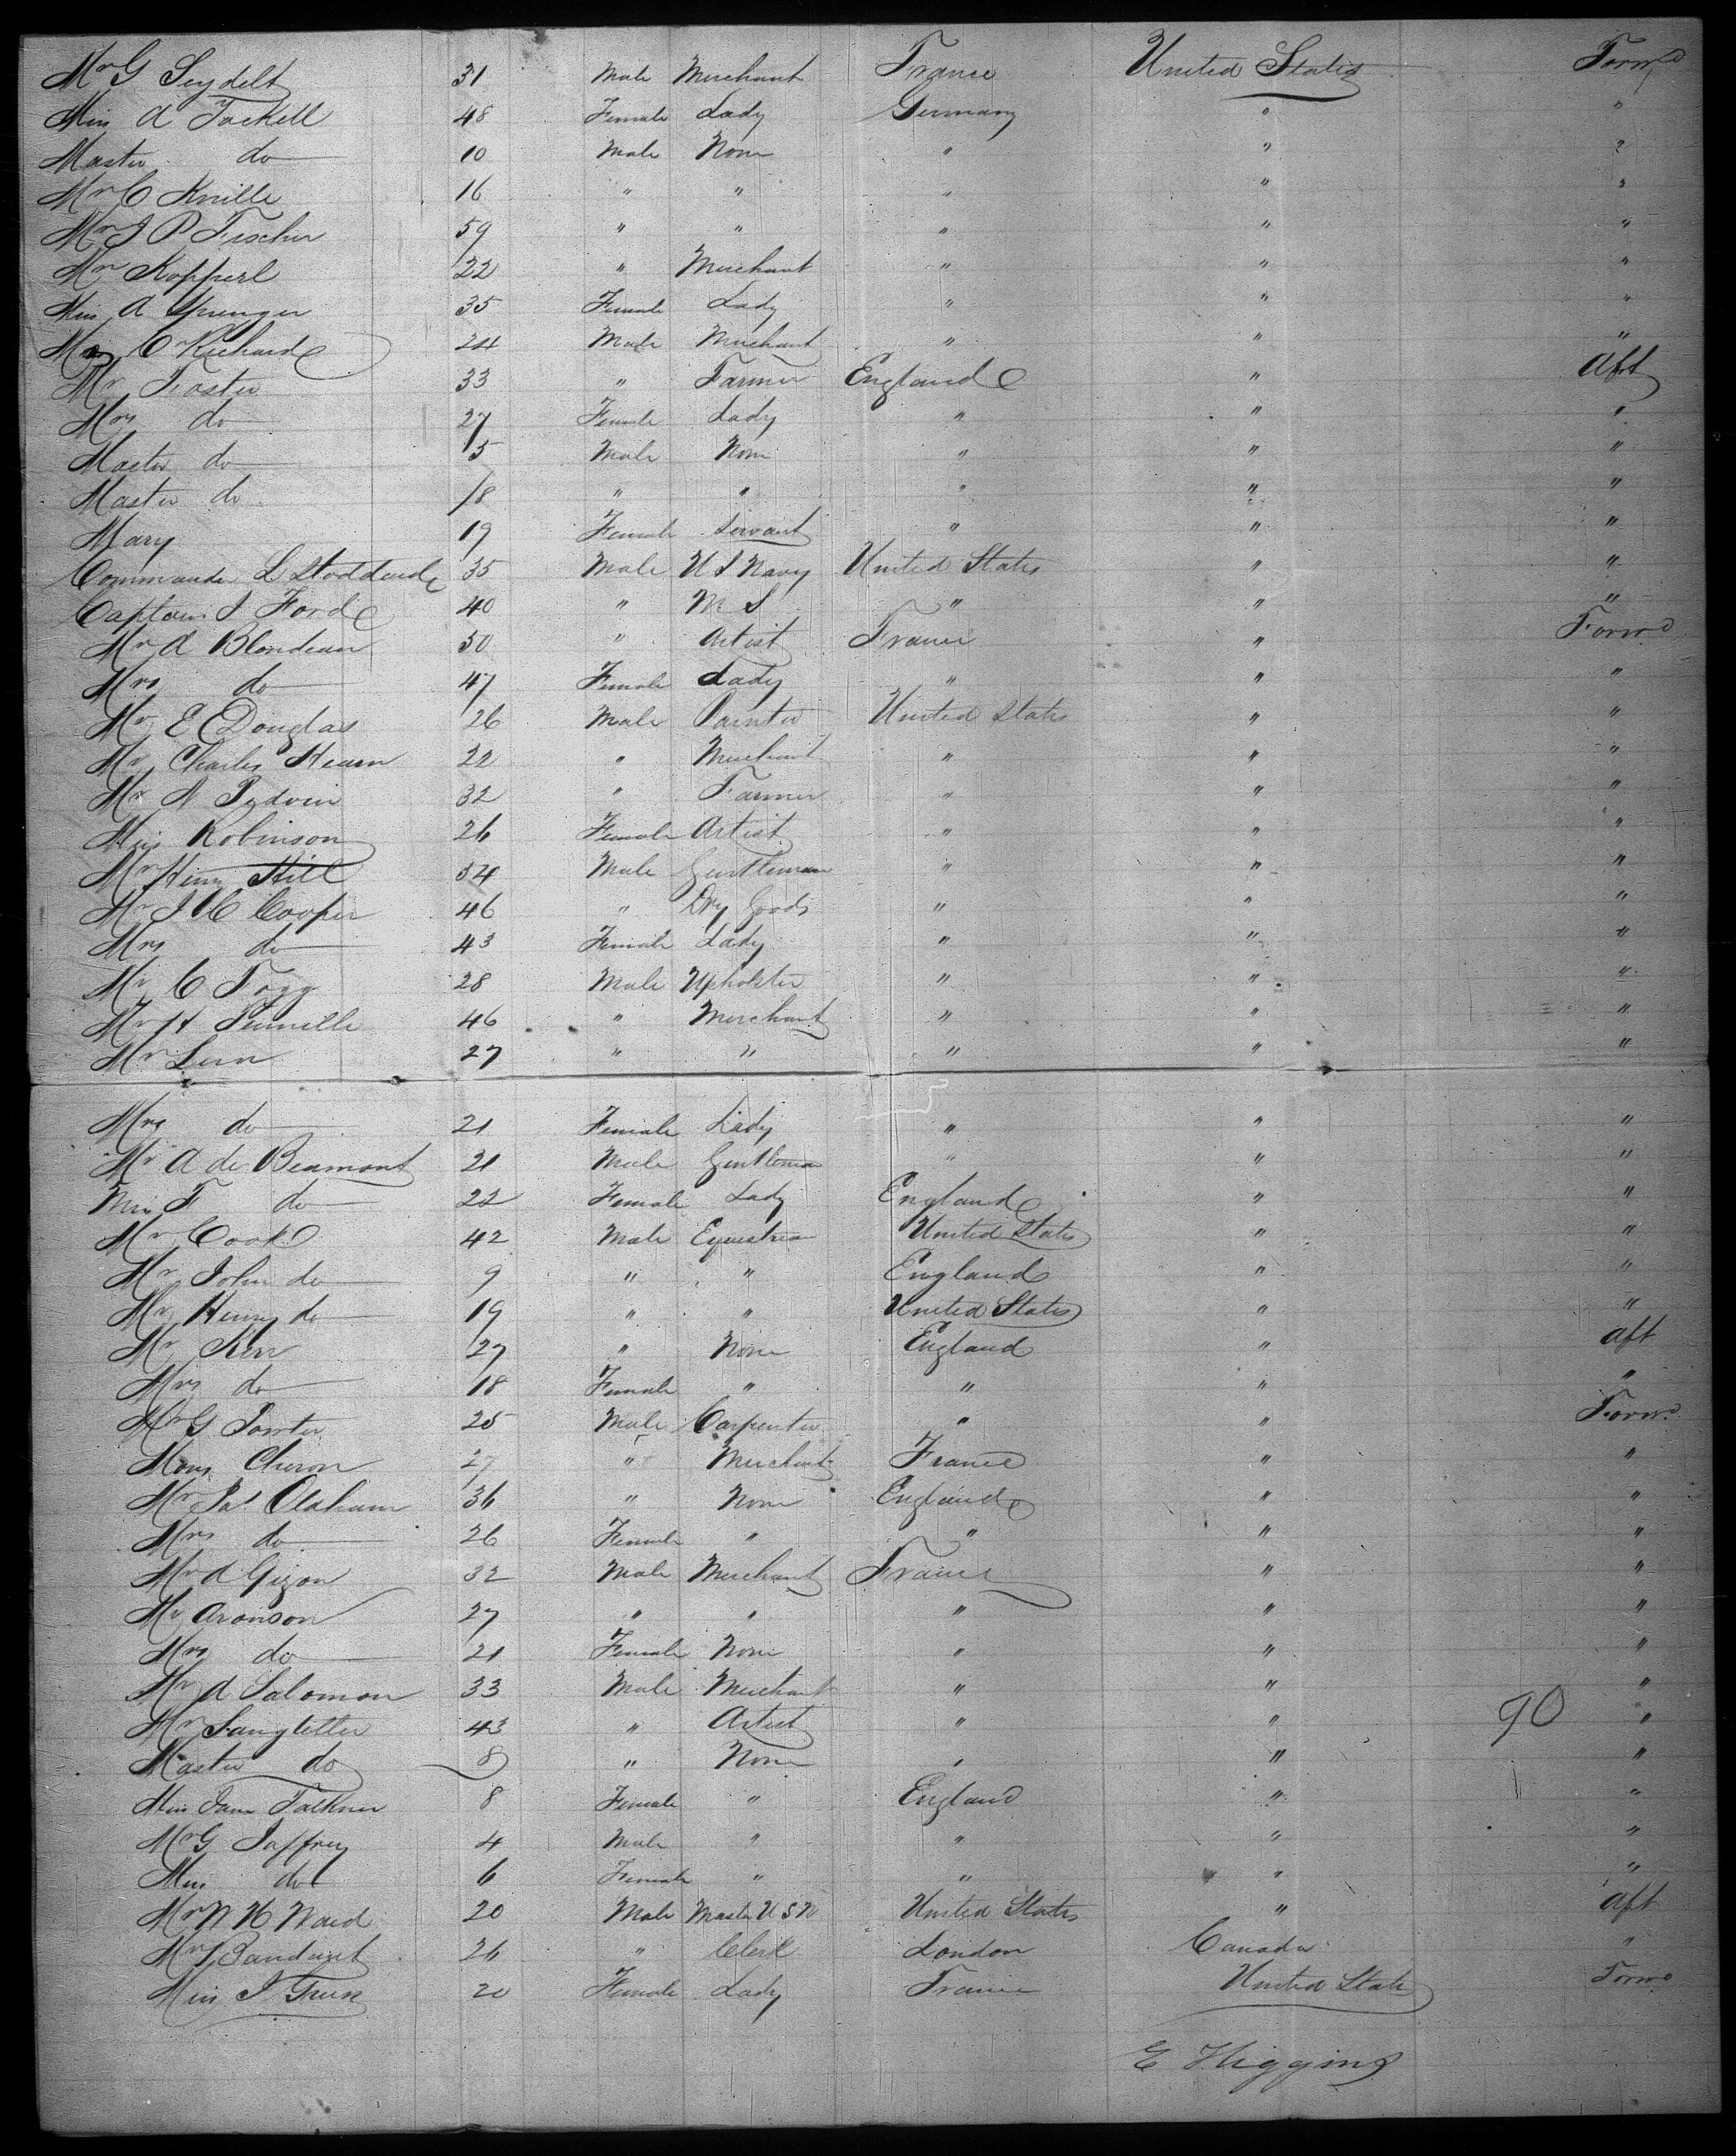 Mr G Seydelt 31 Male Merchant France United States Forwd
Miss A Tackell 48 Female Lady Germany " "
Master do 10 Male None " " "
Mr C Knille 16 " " " " "
Mr J P Fischer 59 " " " " "
Mr Kopperl 22 " Merchant " " "
Miss A Sprenger 35 Female Lady " " "
Mr C Richard 24 Male Merchant " " "
Mr Foster 33 " Farmer England " Aft
Mrs do 27 Female Lady " " "
Master do 5 Male None " " "
Master do 8 " " " " "
Mary 19 Female Servant " " "
Commander L Stoddard 35 Male U S Navy United States " "
Captain J Ford 40 " M S " " "
Mr A Blondeau 50 " Artist France " Forwd
Mrs do 47 Female Lady " " "
Mr E Douglas 26 Male Painter United States " "
Mr Charles Hearn 22 " Merchant " " "
Mr N 32 " Farmer " " "
Miss Robinson 26 Female Artist " " "
Mr Henry Hill 54 Male Gentleman " " "
Mr J C Cooper 46 " Dry Goods " " "
Mrs do 43 Female Lady " " "
Mr C Fogg 28 Male Upholster " " "
Mr H 46 " Merchant " " "
Mr Lern 27 " " " " "
Mrs do 21 Female Lady " " "
Mr A de Beamont 21 Male Gentleman " " "
Miss F do 22 Female Lady England " "
Mr Cook 42 Male Equestrian United States " "
Mr John do 9 " " England " "
Mr Henry do 19 " " United States " "
Mr Kerr 27 " None England " Aft
Mrs do 18 Female " " " "
Mr G Porter 25 Male Carpenter " " Forwd
Mons Cheron 27 " Merchant France " "
Mr Jas Oldham 36 " None England " "
Mrs do 26 Female " " " "
Mr A Gizon 32 Male Merchant France " "
Mr Aronson 27 " " " " "
Mrs do 21 Female None " " "
Mr A Salomon 33 Male Merchant " " "
Mr Langtetter 43 " Artist " " 90 "
Master do 8 " None " " "
Miss Jane Falkner 8 Female " England " "
Mr G Jaffrey 4 Male " " " "
Miss do 6 Female " " " "
Mr W H Ward 20 Male Master U S N United States " Aft
Mr 26 " Clerk London Canada "
Miss J Green 20 Female Lady France United States Forwd
E Higgins